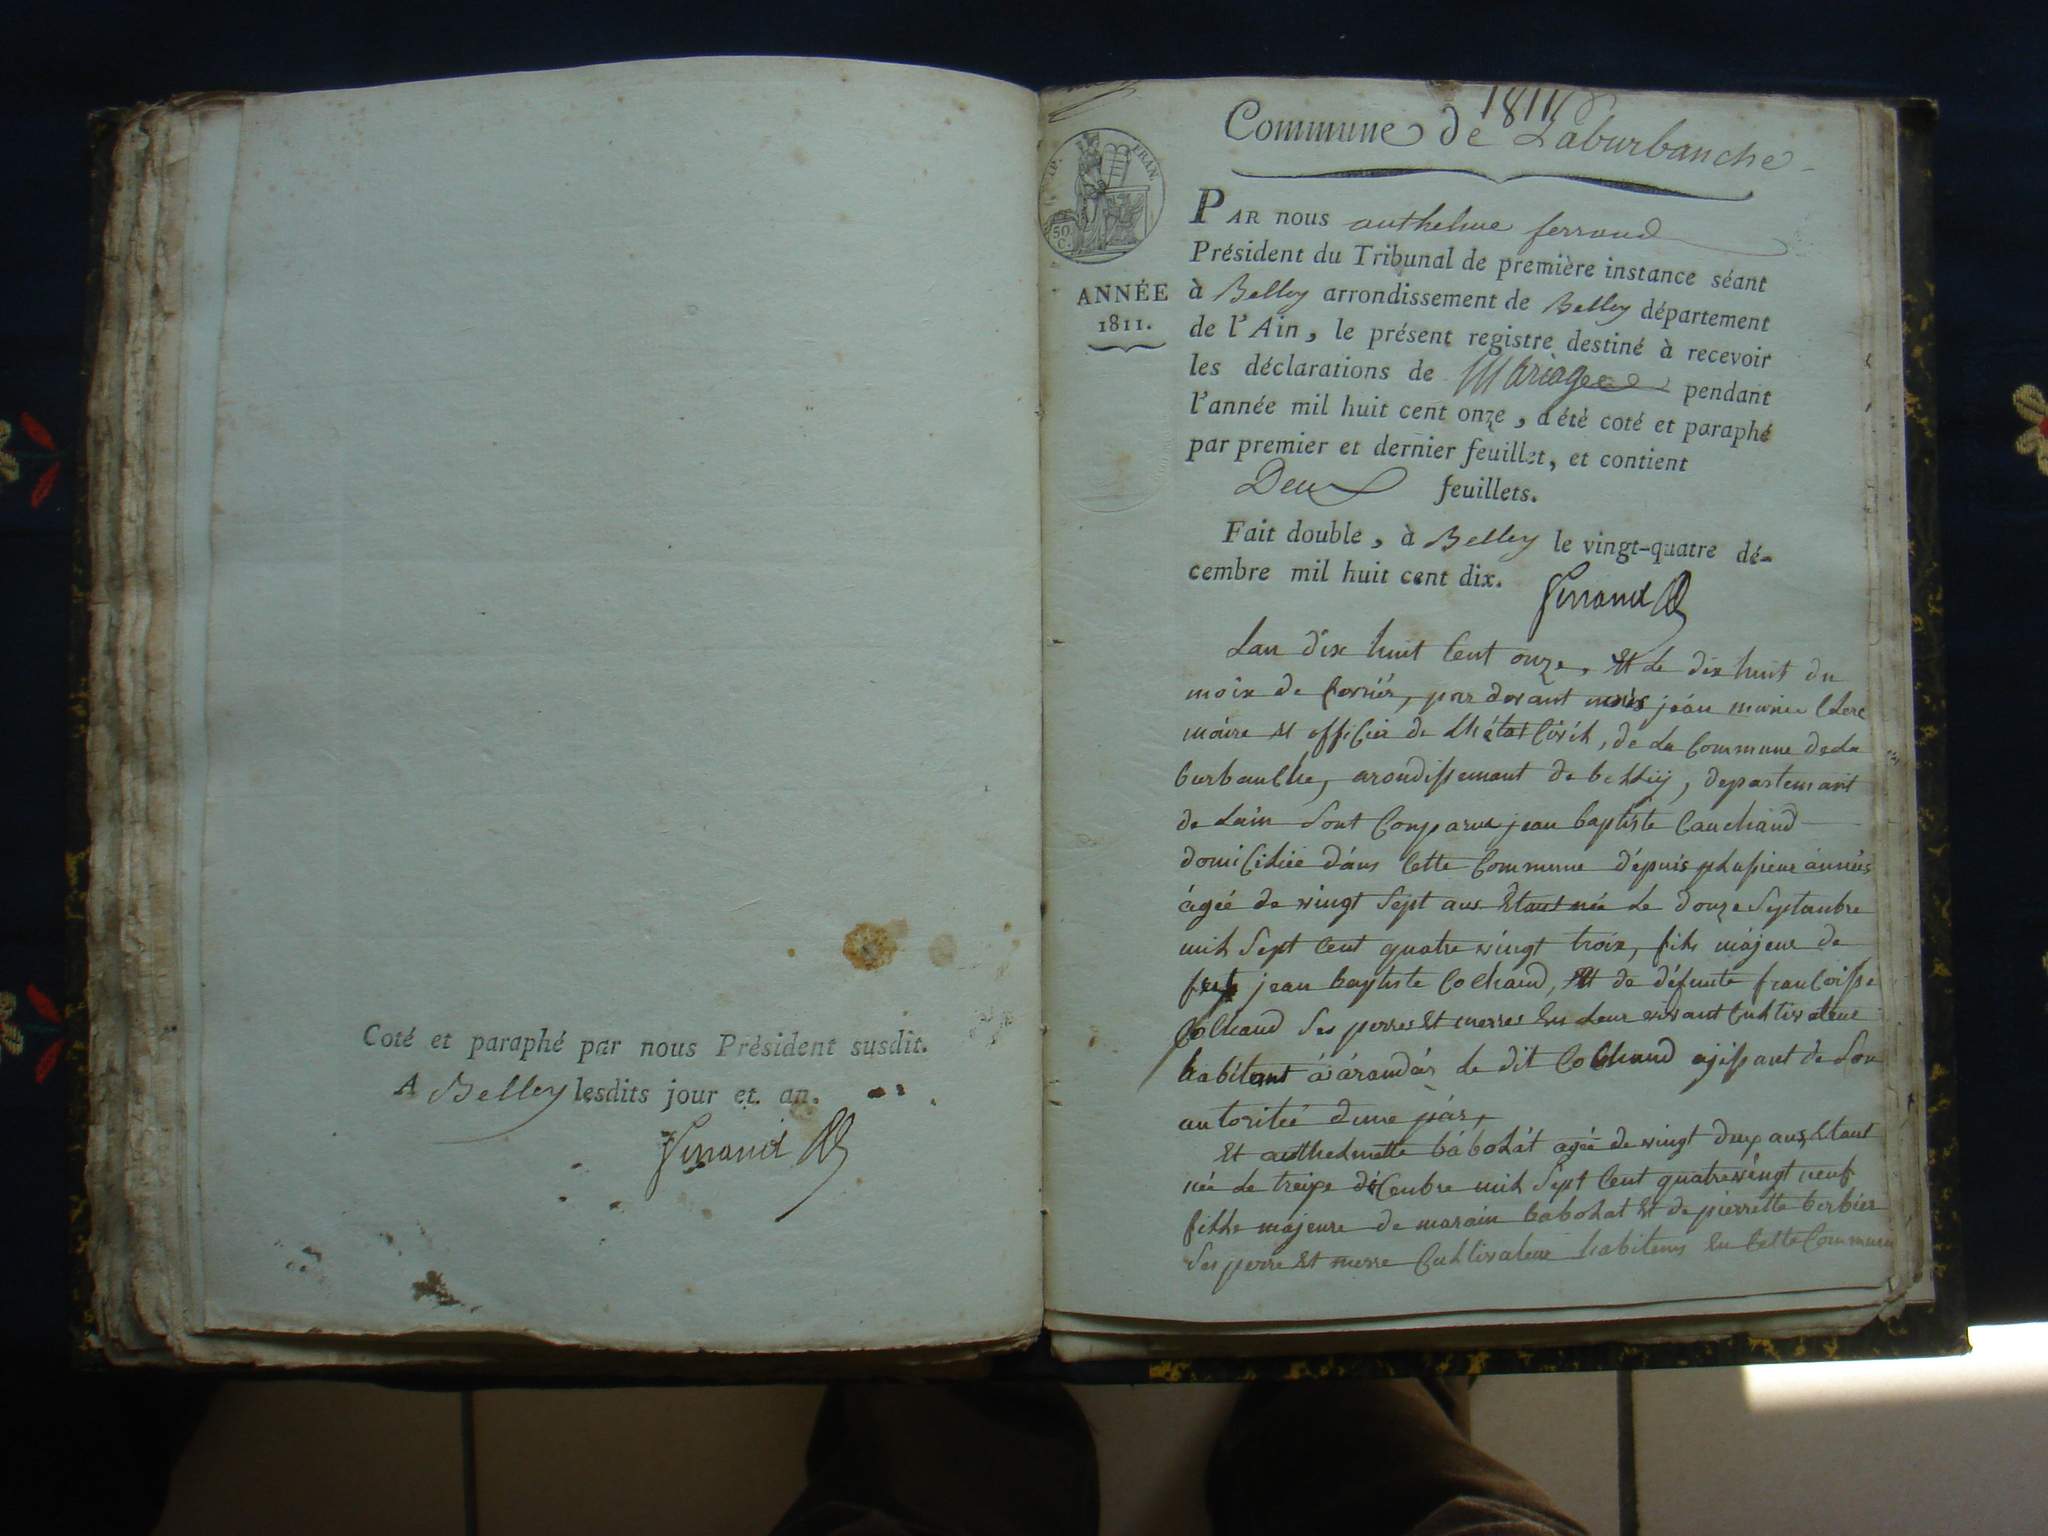 Coté et paraphé par nous Président susdit.
A Belley lesdits jour et an.
Ferrand
1811
Commune de Laburbanche
FRAN.
50
C.
ANNÉE
1811.
PAR nous anthelme ferrand
Président du Tribunal de première instance séant
à Belley arrondissement de Belley département
de l'Ain, le présent registre destiné à recevoir
les déclarations de Mariage pendant
l'année mil huit cent onze, a été coté et paraphé
par premier et dernier feuillet, et contient
Deux feuillets.
Fait double, à Belley le vingt-quatre dé-
cembre mil huit cent dix. Ferrand
Lan dix huit Cent onze, Et le dix huit du
moix de fevriér, par devant nous jéan marie Clerc
máire et officiér de lhétat Civil, de la Commune dela
burbanche, arondissemant de belley, departemant
de Lain Sont Comparus jean baptiste Cauchand
domicilié dáns Cette Commune dépuis plusieur annéés
ágée de vingt Sépt ans Etant née Le douze Septanbre
mil Sept Cent quatre vingt troix, fils májeur de
feu jean baptiste Cochand, Et de défunte francoisse
Cochand Ses perres Et merres En Leur vivant Cultivateur
habitant á árandás le dit Cochand ajissant de Son
autoritéé dune pár,
Et anthelmette bábolát agéé de vingt deux ans, Etant
née Le treize décenbre mil Sept Cent quatrevingt neuf
fille majeure de marain babolat Et de pierrette berbier
Ses perre Et merre Cultivateur habitens En Cette Commune